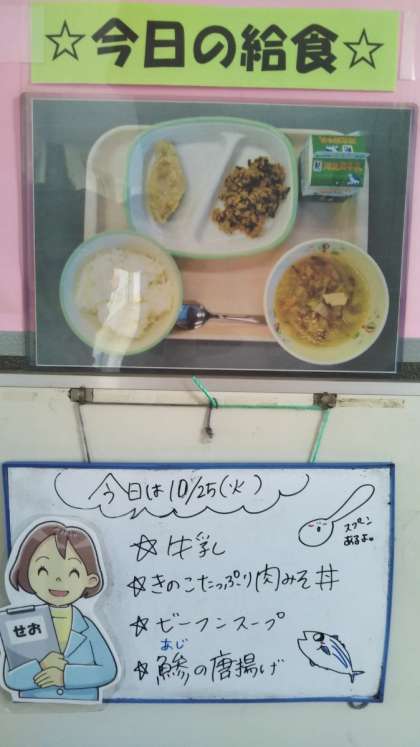 ☆今日の給食☆
今日は10/25(火)
スプーン
あるよ。
☆牛乳
☆きのこたっぷり肉みそ丼
☆ビーフンスープ
あじ
☆鯵の唐揚げ
せお